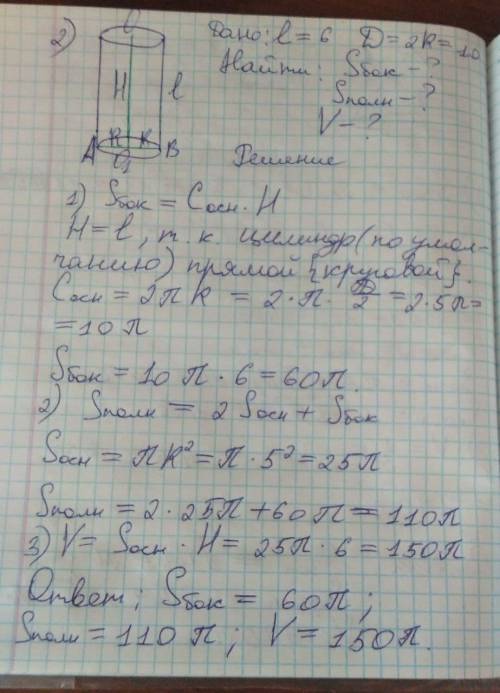 2) Дано: l = 6 D = 2R = 10
Найти: Sбок - ?
Sполн - ?
V - ?
H l
R R
A O₁ B
Решение
1) Sбок = Cосн · H
H = l, т. к. цилиндр (по умол-
чанию) прямой {круговой}.
Cосн = 2πR = 2 · π · D/2 = 2 · 5π =
= 10π
Sбок = 10π · 6 = 60π.
2) Sполн = 2 Sосн + Sбок
Sосн = πR² = π · 5² = 25π
Sполн = 2 · 25π + 60π = 110π
3) V = Sосн · H = 25π · 6 = 150π
Ответ; Sбок = 60π;
Sполн = 110π; V = 150π.